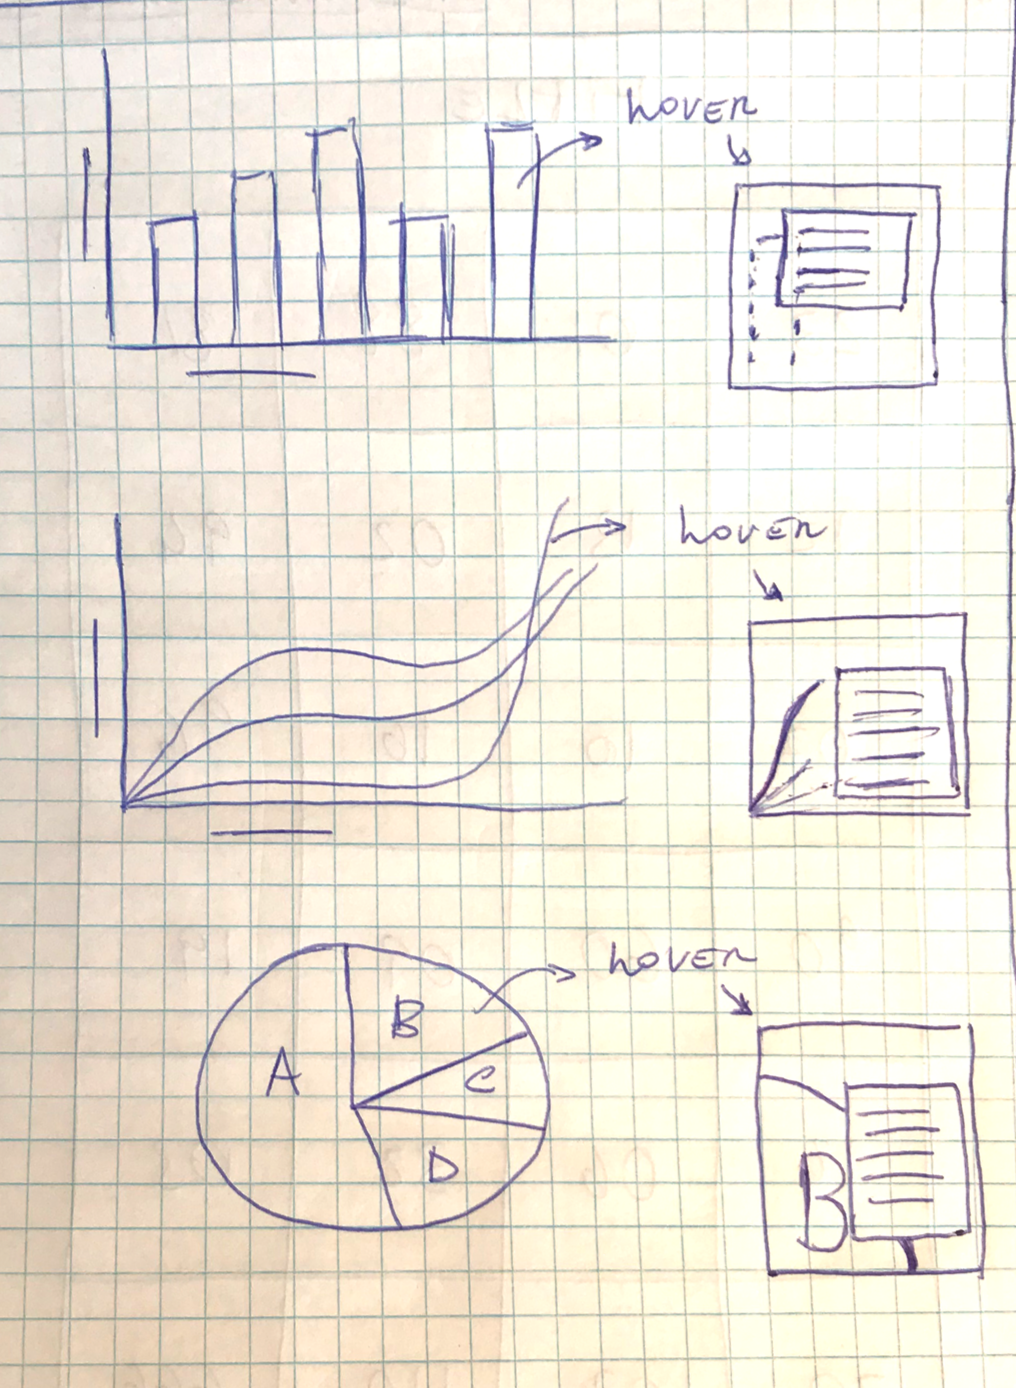 hover
hover
hover
B
A
C
D
B